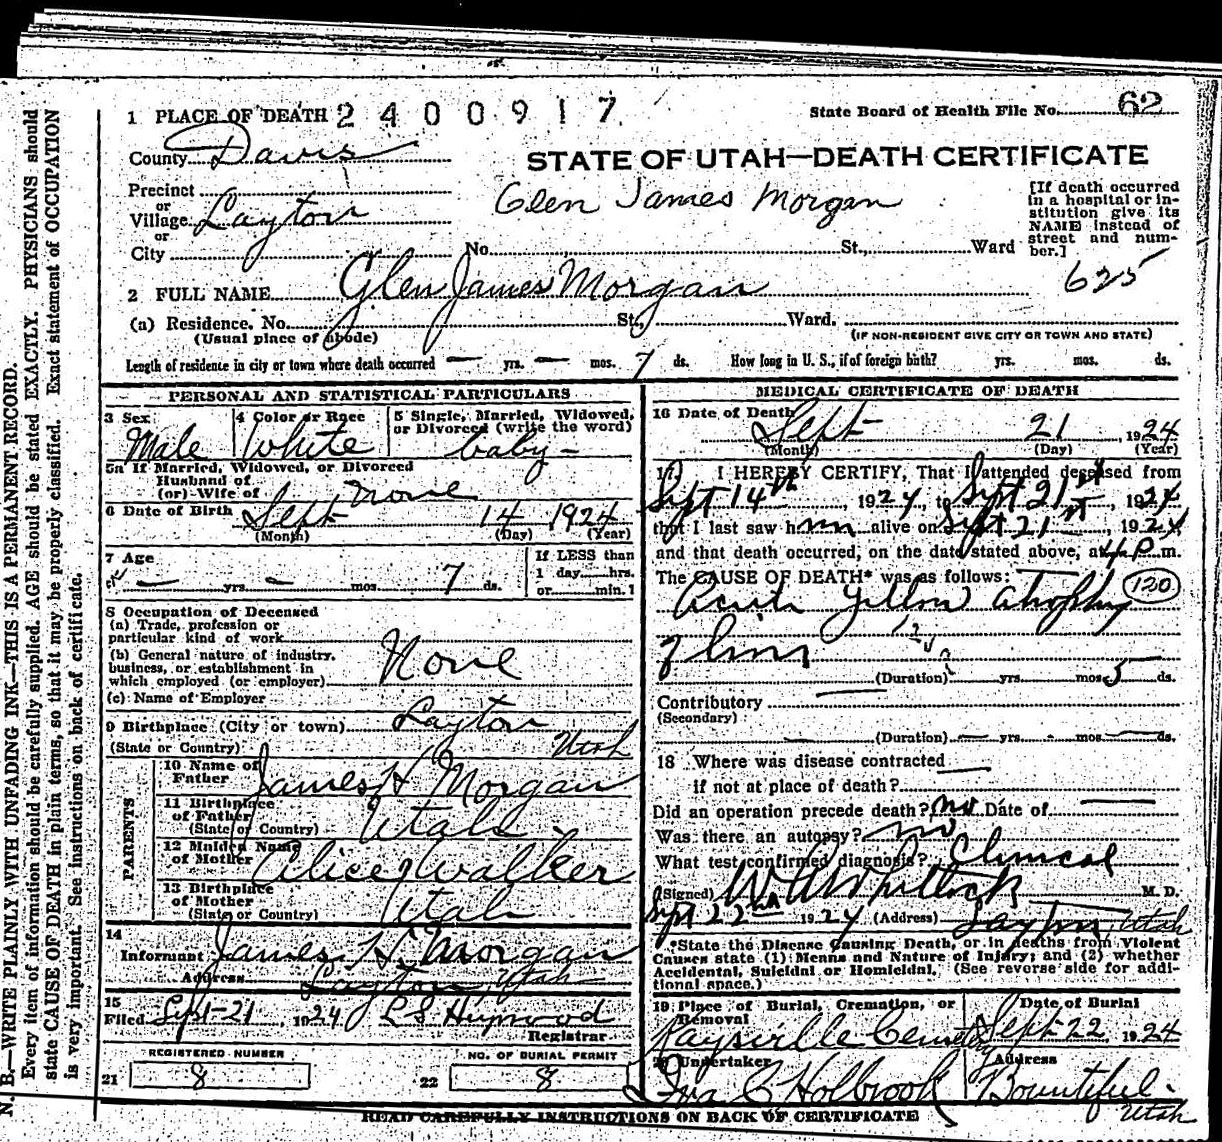 1 PLACE OF DEATH 2400917
State Board of Health File No. 62
County Davis
STATE OF UTAH—DEATH CERTIFICATE
Precinct
or
Village Layton
or
City
Glen James Morgan
[If death occurred in a hospital or in-
stitution give its
NAME instead of
street and num-
ber.]
No. St., Ward
625
2 FULL NAME Glen James Morgan
(a) Residence. No. St., Ward.
(Usual place of abode)
(IF NON-RESIDENT GIVE CITY OR TOWN AND STATE)
Length of residence in city or town where death occurred — yrs. — mos. 7 ds. How long in U. S., if of foreign birth? yrs. mos. ds.
PERSONAL AND STATISTICAL PARTICULARS
3 Sex
Male
4 Color or Race
White
5 Single, Married, Widowed,
or Divorced (write the word)
baby -
5a If Married, Widowed, or Divorced
Husband of
(or) Wife of none
6 Date of Birth Sept 14 1924
(Month) (Day) (Year)
7 Age
— yrs — mos. 7 ds.
If LESS than
1 day hrs.
or min.1
8 Occupation of Deceased
(a) Trade, profession or
particular kind of work
(b) General nature of industry.
business, or establishment in
which employed (or employer) None
(c) Name of Employer
9 Birthplace (City or town) Layton
(State or Country) Utah
PARENTS
10 Name of
Father James H Morgan
11 Birthplace
of Father
(State or Country) Utah
12 Maiden Name
of Mother Alice Walker
13 Birthplace
of Mother
(State or Country) Utah
14
Informant James H. Morgan
Address Layton, Utah
15
Filed Sept-21, 1924 L S Heywood
Registrar
REGISTERED NUMBER
21 8
NO. OF BURIAL PERMIT
22 8
MEDICAL CERTIFICATE OF DEATH
16 Date of Death
Sept 21, 1924
(Month) (Day) (Year)
17 I HEREBY CERTIFY, That I attended deceased from
Sept 14th, 1924, to Sept 21st, 1924
that I last saw him alive on Sept 21st, 1924,
and that death occurred, on the date stated above, at 4 P. m.
The CAUSE OF DEATH* was as follows:
Acute Yellow atrophy 120
of liver
(Duration) yrs. mos. 5 ds.
Contributory —
(Secondary)
(Duration) — yrs. - mos. — ds.
18 Where was disease contracted —
if not at place of death?
Did an operation precede death? no Date of —
Was there an autopsy? no
What test confirmed diagnosis? Clinical
(Signed) W A Whitlock M. D.
Sept 22nd 1924 (Address) Layton Utah
*State the Disease Causing Death, or in deaths from Violent
Causes state (1) Means and Nature of Injury; and (2) whether
Accidental, Suicidal or Homicidal. (See reverse side for addi-
tional space.)
19 Place of Burial, Cremation, or
Removal
Kaysville Cemetery
Date of Burial
Sept 22, 1924
20 Undertaker
Ira C Holbrook
Address
Bountiful.
Utah
READ CAREFULLY INSTRUCTIONS ON BACK OF CERTIFICATE
N. B.—WRITE PLAINLY WITH UNFADING INK—THIS IS A PERMANENT RECORD.
Every item of information should be carefully supplied. AGE should be stated EXACTLY. PHYSICIANS should
state CAUSE OF DEATH in plain terms, so that it may be properly classified. Exact statement of OCCUPATION
is very important. See instructions on back of certificate.